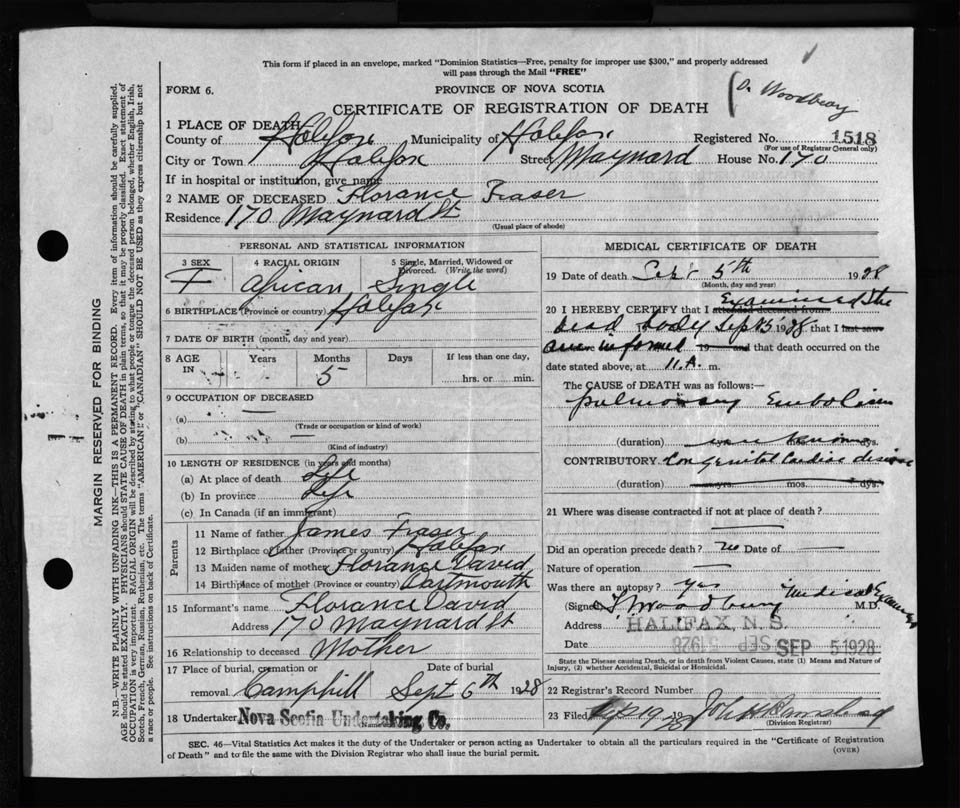 This form if placed in an envelope, marked "Dominion Statistics—Free, penalty for improper use $300," and properly addressed
will pass through the Mail "FREE"
FORM 6.
PROVINCE OF NOVA SCOTIA
CERTIFICATE OF REGISTRATION OF DEATH
Dr Woodbury
1 PLACE OF DEATH
County of Halifax Municipality of Halifax Registered No. 1518
(For use of Registrar General only)
City or Town Halifax Street Maynard House No. 170
If in hospital or institution, give name
2 NAME OF DECEASED Florance Fraser
Residence 170 Maynard St
(Usual place of abode)
PERSONAL AND STATISTICAL INFORMATION
3 SEX F
4 RACIAL ORIGIN African
5 Single, Married, Widowed or Divorced. (Write the word) Single
6 BIRTHPLACE (Province or country) Halifax
7 DATE OF BIRTH (month, day and year)
8 AGE IN Years Months 5 Days If less than one day, hrs. or min.
9 OCCUPATION OF DECEASED
(a) —
(Trade or occupation or kind of work)
(b)
(Kind of industry)
10 LENGTH OF RESIDENCE (in years and months)
(a) At place of death Life
(b) In province Life
(c) In Canada (if an immigrant)
Parents
11 Name of father James Fraser
12 Birthplace of father (Province or country) Halifax
13 Maiden name of mother Florance David
14 Birthplace of mother (Province or country) Dartmouth
15 Informant's name Florance David
Address 170 Maynard St
16 Relationship to deceased Mother
17 Place of burial, cremation or removal Camphill Date of burial Sept 6th 1928
18 Undertaker Nova Scotia Undertaking Co.
MEDICAL CERTIFICATE OF DEATH
19 Date of death 5th 1928
(Month, day and year)
20 I HEREBY CERTIFY that I attended deceased from Examined the
dead body Sept 5 1928 that I last saw
am informed 19 and that death occurred on the
date stated above, at 11.A. m.
The CAUSE OF DEATH was as follows:—
Pulmonary Embolism
(duration) unknown dys.
CONTRIBUTORY Congenital Cardiac disease
(duration) yrs. mos. dys.
21 Where was disease contracted if not at place of death?
—
Did an operation precede death? no Date of —
Nature of operation —
Was there an autopsy? yes
(Signed) Woodbury Medical Examiner M.D.
Address HALIFAX, N. S.
Date SEP 5 1928
State the Disease causing Death, or in death from Violent Causes, state (1) Means and Nature of
Injury, (2) whether Accidental, Suicidal or Homicidal.
22 Registrar's Record Number
23 Filed 19 28
(Division Registrar)
SEC. 46—Vital Statistics Act makes it the duty of the Undertaker or person acting as Undertaker to obtain all the particulars required in the "Certificate of Registration
of Death" and to file the same with the Division Registrar who shall issue the burial permit.
(OVER)
MARGIN RESERVED FOR BINDING
N.B.—WRITE PLAINLY WITH UNFADING INK—THIS IS A PERMANENT RECORD. Every item of information should be carefully supplied.
AGE should be stated EXACTLY. PHYSICIANS should STATE CAUSE OF DEATH in plain terms, so that it may be properly classified. Exact statement of
OCCUPATION is very important. RACIAL ORIGIN will be described by stating to what people or tongue the deceased person belonged, whether English, Irish,
Scotch, French, German, Russian, Ruthenian, etc. The terms "AMERICAN" or "CANADIAN" SHOULD NOT BE USED as they express citizenship but not
a race or people. See instructions on back of Certificate.